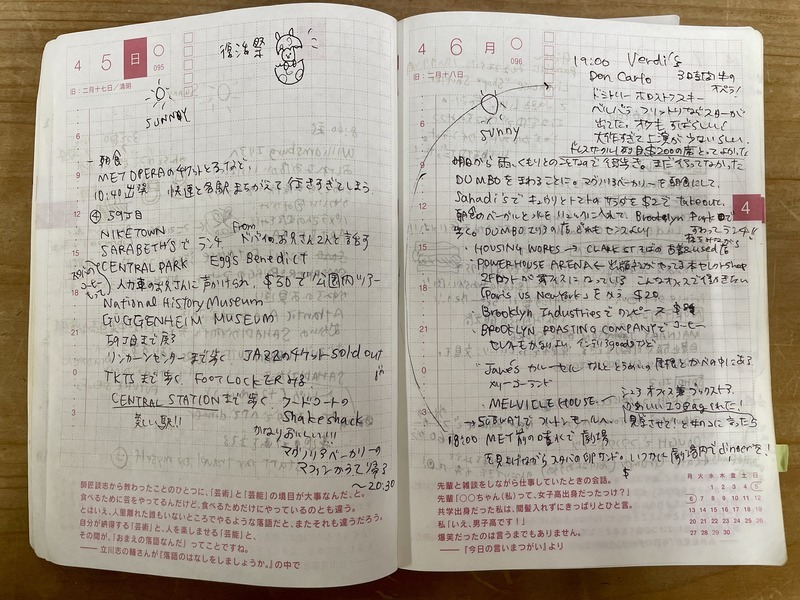 4 5 日
095
旧：二月十七日／清明
復活祭
SUNNY
朝食
MET OPERAのチケットとるなど。
10:40 出発 快速と各駅まちがえて行きすぎてしまう
④ 59丁目
NIKETOWN
SARABETH'Sで ランチ from ドバイのお兄さん2人と話す
CENTRAL PARK Egg's Benedict
コーヒー
人力車のお兄さんに声かけられ、$30で公園内ツアー
National History Museum
GUGGENHEIM MUSEUM
59丁目まで戻る
リンカーンセンターまで歩く JAZZのチケット sold out
TKTSまで歩く FOOT LOCKER みる
CENTRAL STATIONまで歩く フードコートの
美しい駅!! Shake shack
かなりおいしい!!!
マグノリアベーカリーの
マフィンかって帰る
〜20:30
6
9
12
15
18
21
0
3
師匠談志から教わったことのひとつに、「芸術」と「芸能」の境目が大事なんだ、と。
食べるために芸をやってるんだけど、食べるためだけにやっているのとも違う。
とはいえ、人里離れた誰もいないところでやるような落語だと、またそれも違うだろう。
自分が納得する「芸術」と、人を楽しませる「芸能」と、
その間が、「おまえの落語なんだ」ってことですね。
——立川志の輔さんが『落語のはなしをしましょうか。』の中で
4 6 月
096
旧：二月十八日
sunny
19:00 Verdi's
Don Carlo 3日言語の
オペラ！
ドミトリー ホロストフスキー
出てた。オケもすばらしい！
大作すぎて上演が少ないらしい。
明日から雨、くもりとのことなので
DUMBOをまわることに。マグノリアベーカリーを朝食にして。
Sahadi'sで キュウリとトマトのサラダを $2で takeout.
朝食のベーグルと水をリュックに入れて、Brooklyn Parkで
歩く。DUMBOエリアの店 どれもセンスよい
・HOUSING WORKS → CLARK STそばの 古着、used店
・POWERHOUSE ARENA ← 出版社がやってる本セレクトshop
2Fロフトがオフィスになっている こんなオフィスで働きたい
「Paris vs New York」を買う。$20.
・Brooklyn Industriesで ワンピース
・BROOKLYN ROASTING COMPANYで コーヒー
・Jane's カルーセル
メリーゴーランド
・MELVILLE HOUSE. シェアオフィス兼ブックストア。
かわいいエコbag
→SUBWAYで フルトンモールへ。
18:00 MET前の噴水で 劇場
を見上げながらスタバの卵サンド。いつかは劇場内でdinnerを！
4
先輩と雑談をしながら仕事していたときの会話。
先輩「〇〇ちゃん（私）って、女子高出身だったっけ？」
共学出身だった私は、間髪入れずにきっぱりとひと言。
私「いえ、男子高です！」
爆笑だったのは言うまでもありません。
——『今日の言いまつがい』より
月 火 水 木 金 土 日
1 2 3 4 5
6 7 8 9 10 11 12
13 14 15 16 17 18 19
20 21 22 23 24 25 26
27 28 29 30